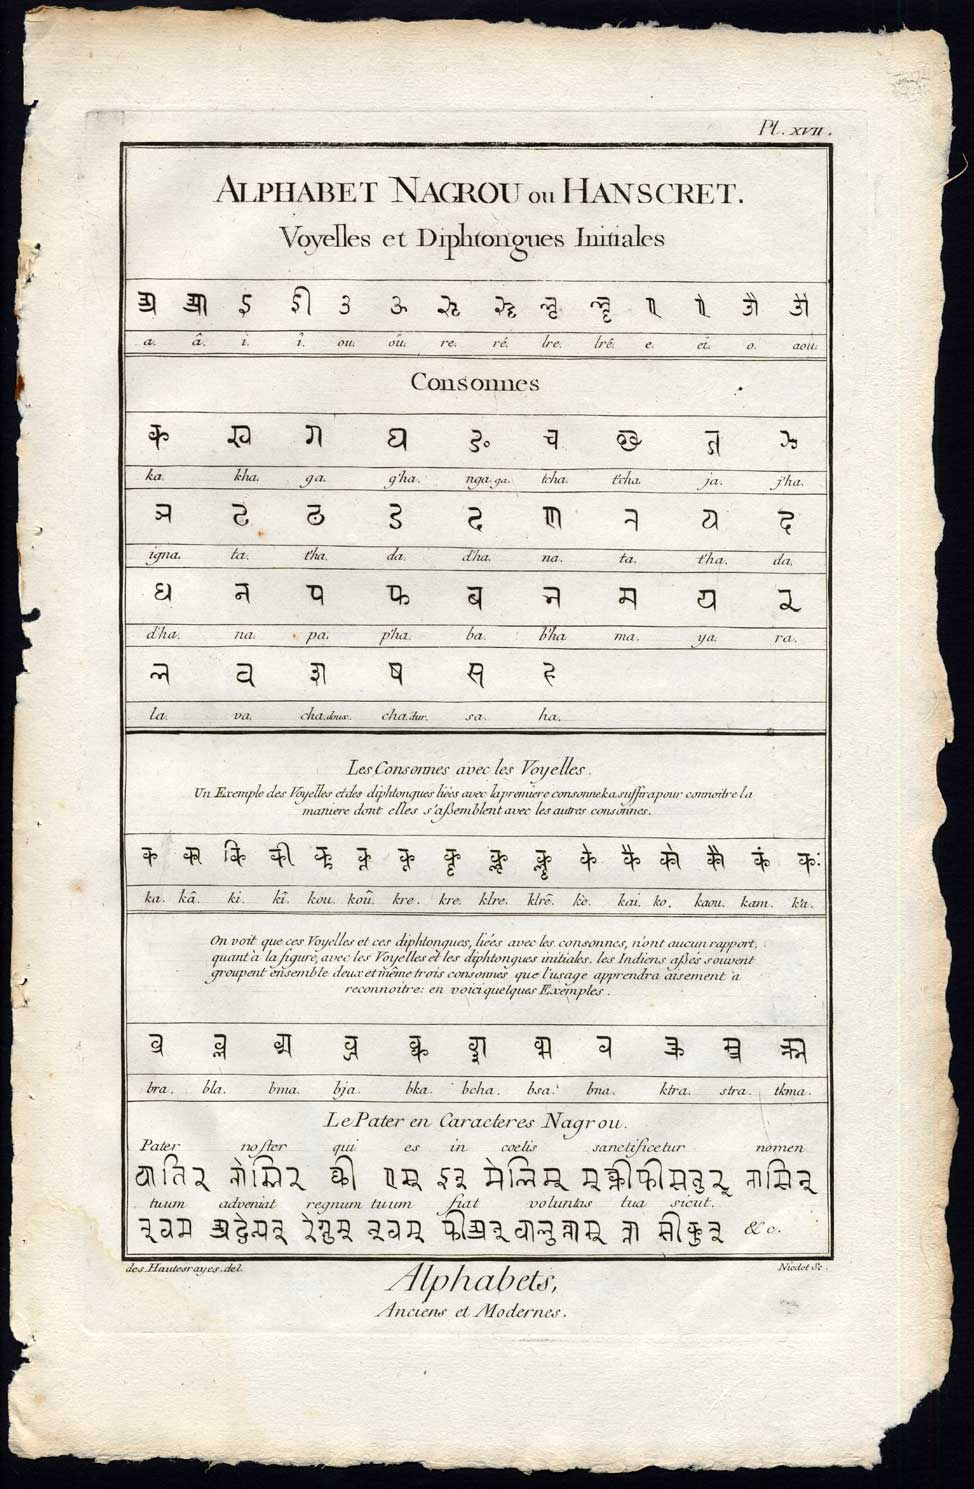 Pl. XVII.
ALPHABET NAGROU ou HANSCRET.
Voyelles et Diphtongues Initiales
अ आ इ ई उ ऊ ऋ ॠ ऌ ॡ ए ऐ ओ औ
a. â. i. î. ou. oû. re. rê. lre. lrê. e. ei. o. aou.
Consonnes
क ख ग घ ङ च छ ज झ
ka. kha. ga. g'ha. nga.ga. tcha. t'cha. ja. j'ha.
ञ ट ठ ड ढ ण त थ द
igna. ta. t'ha. da. d'ha. na. ta. t'ha. da.
ध न प फ ब भ म य र
d'ha. na. pa. p'ha. ba. b'ha ma. ya. ra.
ल व श ष स ह
la. va. cha.doux. cha.dur. sa. ha.
Les Consonnes avec les Voyelles.
Un Exemple des Voyelles et des diphtongues liées avec la premiere consonne ka suffira pour connoitre la
maniere dont elles s'assemblent avec les autres consonnes.
क का कि की कु कू कृ कॄ कॢ कॣ के कै को कौ कं कः
ka. kâ. ki. kî. kou. koû. kre. kre. klre. klrê. kè. kai. ko. kaou. kam. k'a.
On voit que ces Voyelles et ces diphtongues, liées avec les consonnes, n'ont aucun rapport,
quant à la figure, avec les Voyelles et les diphtongues initiales. les Indiens assés souvent
groupent ensemble deux et même trois consonnes que l'usage apprendra aisement a
reconnoitre: en voici quelques Exemples.
bra. bla. bma. bja. bka. bcha. bsa. bna. ktra. stra. tkma.
Le Pater en Caracteres Nagrou.
Pater noster qui es in coelis sanctificetur nomen
tuum adveniat regnum tuum fiat voluntas tua sicut.
&c.
des Hautesrayes.del. Niodot Sc.
Alphabets,
Anciens et Modernes.